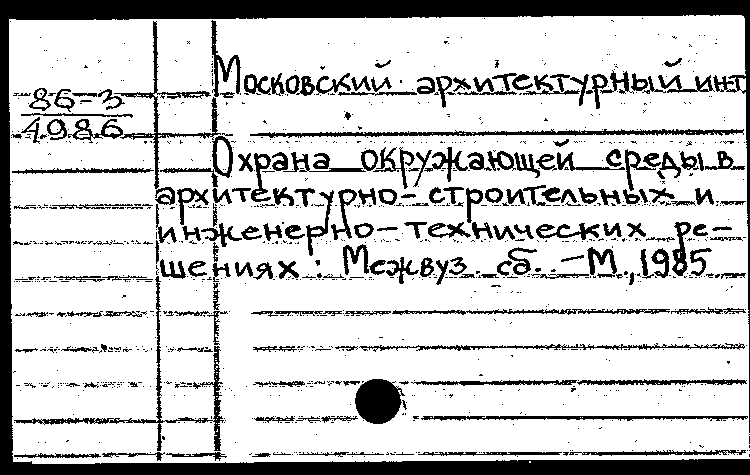 Московский архитектурный инт
86-3
4986
Охрана окружающей среды в
архитектурно-строительных и
инженерно-технических ре-
шениях: Межвуз. сб. -М., 1985